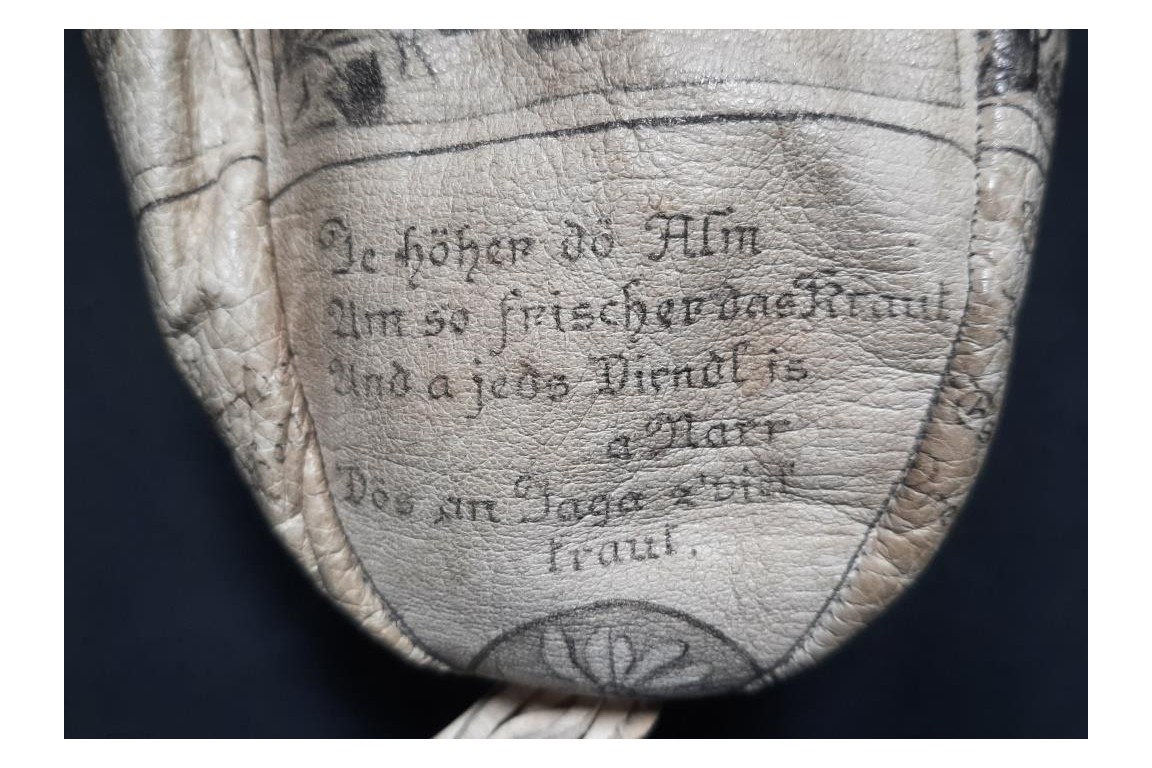 Je höher dö Alm
Um so frischer das Kraut
Und a jeds Dirndl is
a Narr
Dös an Jaga z'viel
traut.